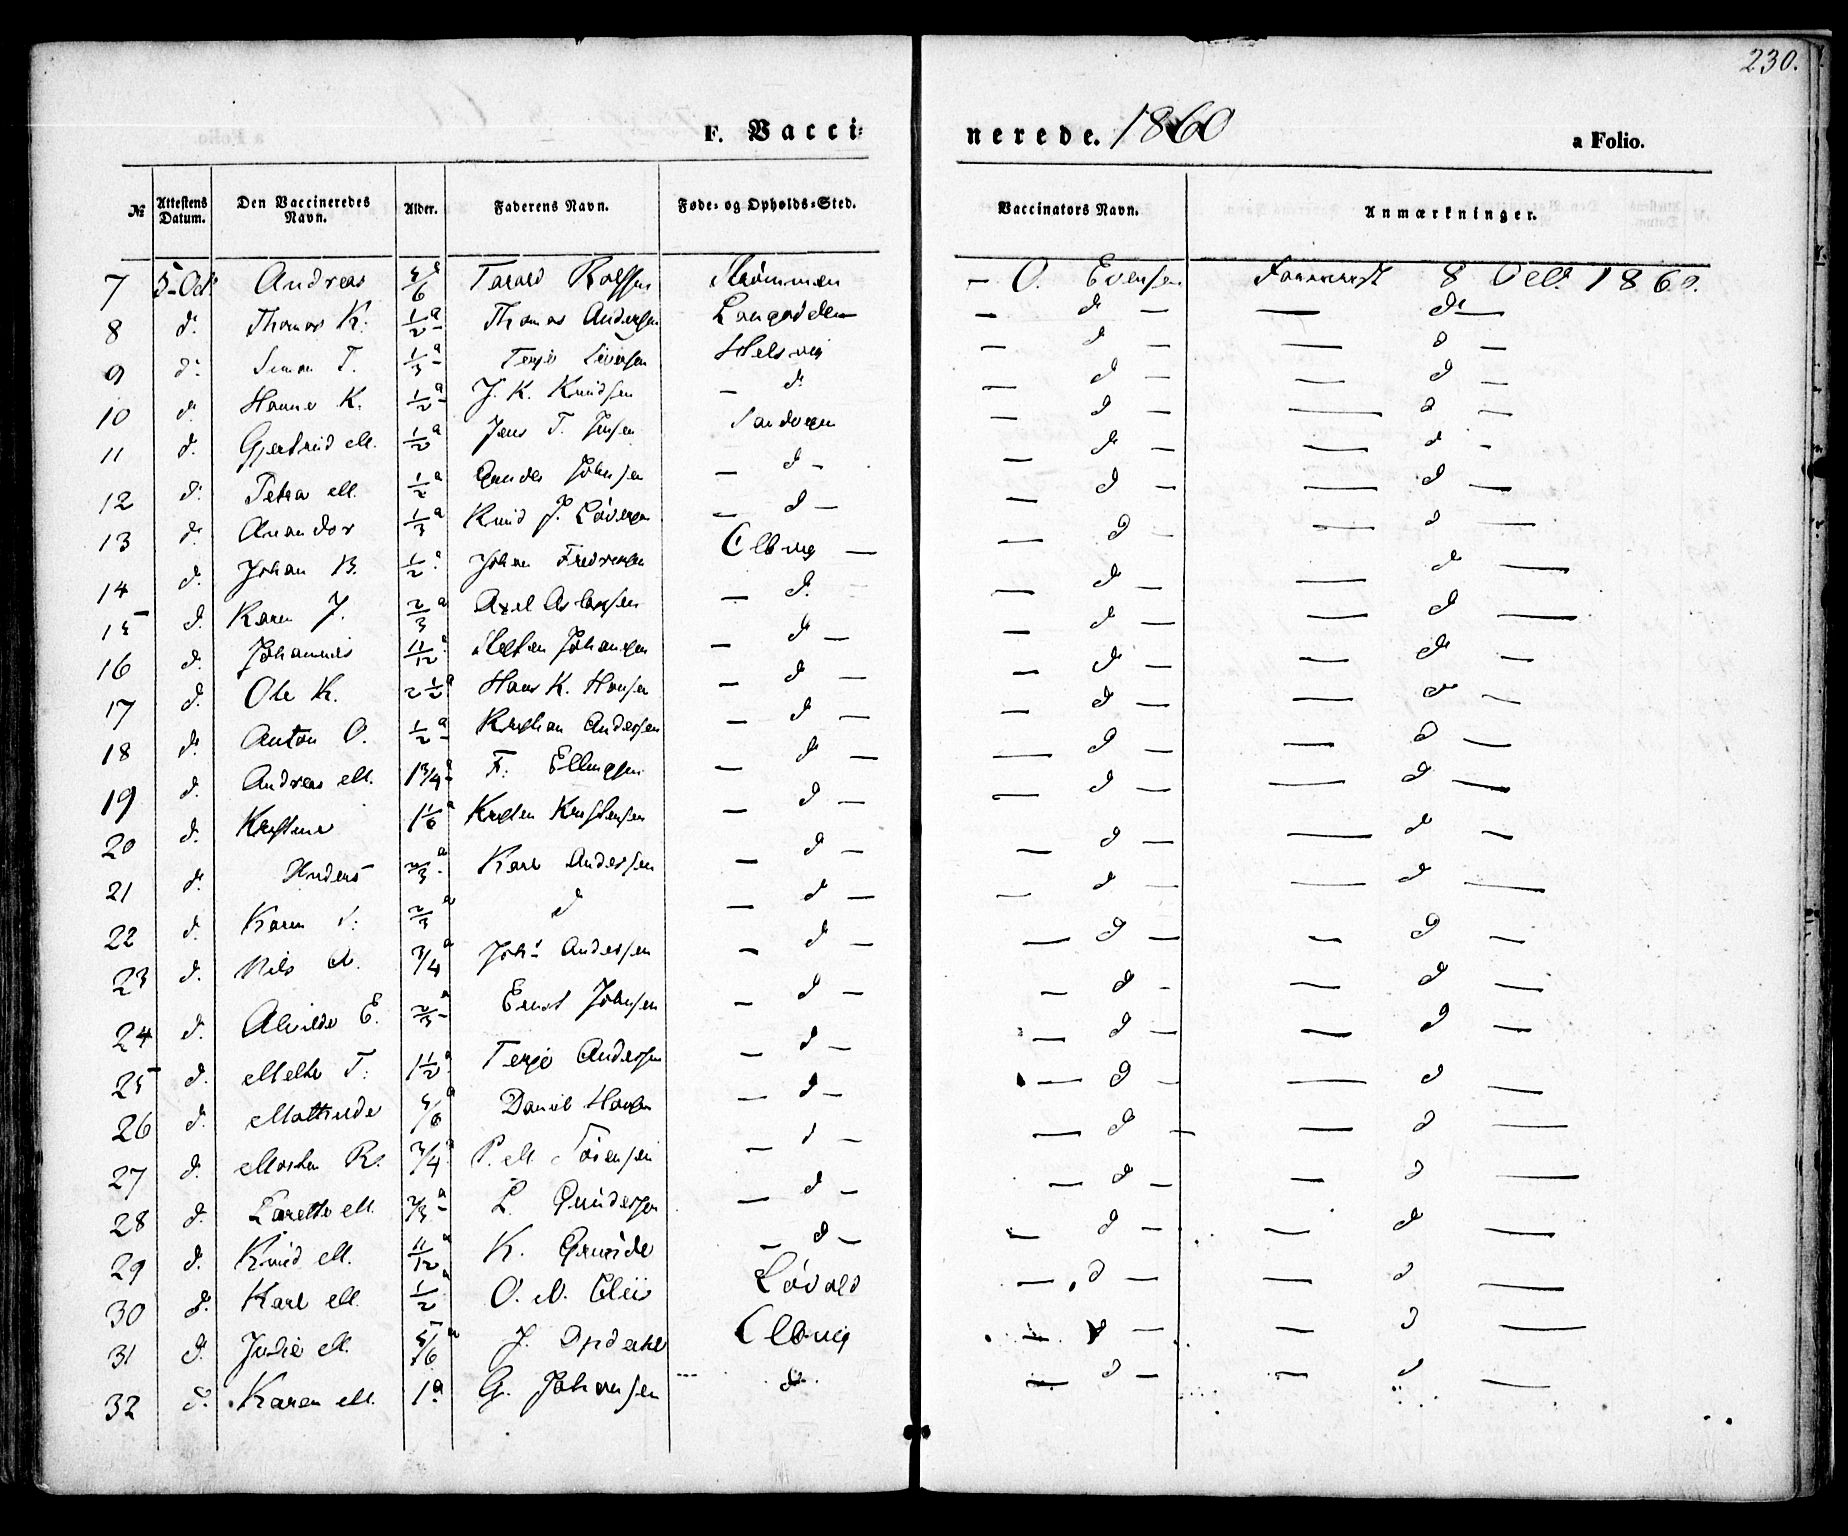 230.
F. Vaccinerede. 1860 a Folio.
№ Attestens Datum. Den Vaccineredes Navn. Alder. Faderens Navn. Føde- og Opholds-Sted. Vaccinators Navn. Anmærkninger.
7 5 Oct Andreas 5/6 a Tarald Rolfsen Strømmen - O. Evensen 8 Octb. 1860.
8 d. Thomas K. 1/2 a Thomas Andersen — d — — d —
9 d. Simon T. 1/3 a Terje Siversen Helsvig — d — — d —
10 d. Hanne K. 1/2 a J. K. Knudsen — d — d — — d —
11 d. Gjertrud M. 1/2 a Jens T. Jensen Sandvigen — d — — d —
12 d. Petra M. 1/2 a Gunder Johnsen — d — — d — — d —
13 d. 1/3 a Knud J. — d — — d — — d —
14 d. Johan B. 1/2 a Johan Fredriksen — — d — — d —
15 d. Karen J. 2/3 a Axel Aslaksen — d. — d — — d —
16 d. Johannes 11/12 a Johansen — d — — d — — d —
17 d. Ole K. 2 1/2 a Hans K. Hansen — d — — d — — d —
18 d. Anton O. 1/2 a Kristian Andersen — d — — d — — d —
19 d. Andreas M. 1 3/4 a F. Ellingsen — d — — d — — d —
20 d. Kristine 1 1/6 a Kristen Kristensen — d — — d — — d —
21 d. Anders 2/3 a Karl Andersen — d — — d — — d —
22 d. Karen 2/3 a d — d — — d — — d —
23 d. Nils A. 3/4 a Johs Andersen — d — — d — — d —
24 d. Alvilde E. 2/3 a Ernst Johnsen — d — — d — — d —
25 d. Mette T. 1 1/2 a Terje Andersen — d — — d — — d —
26 d. Mathilde 5/6 a Daniel Hansen — d — — d — — d —
27 d. Morten R. 3/4 a P. M. Sørensen — d — — d — — d —
28 d. Larette M. 2/3 a L. Gundersen — d — — d — — d —
29 d. Knud M. 11/12 a K. — d — — d — — d —
30 d. Karl M. 1/2 a O. N. Løvold — d — — d —
31 d. Julie M. 5/6 a J. Opdahl — d — — d —
32 d. Karen M. 1 a G. Johansen d. — d — — d —